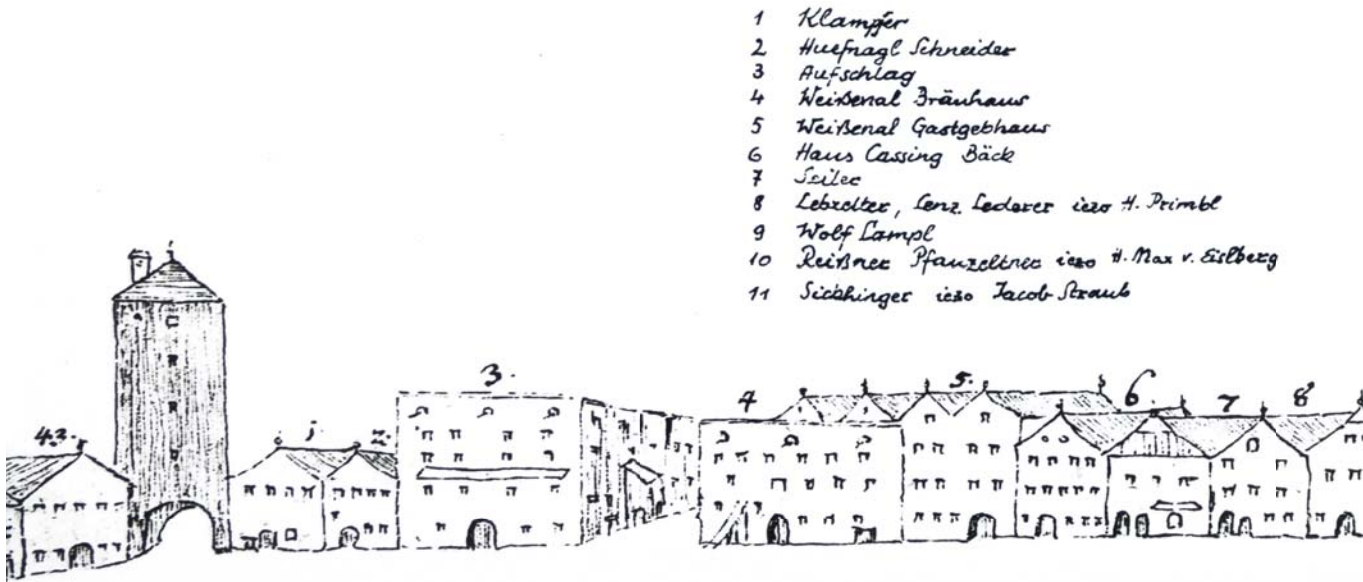 1 Klampfer
2 Huefnagl Schneider
3 Aufschlag
4 Weißenal Bräuhaus
5 Weißenal Gastgebhaus
6 Haus Cassing Bäck
7 Seiler
8 Lebzelter, Lenz. Lederer iezo H. Primbl
9 Wolf Lampl
10 Reißner Pfanzeltner iezo H. Max v. Eislberg
11 Sickhinger iezo Jacob Straub
43. 1. 2. 3. 4 5. 6. 7 8